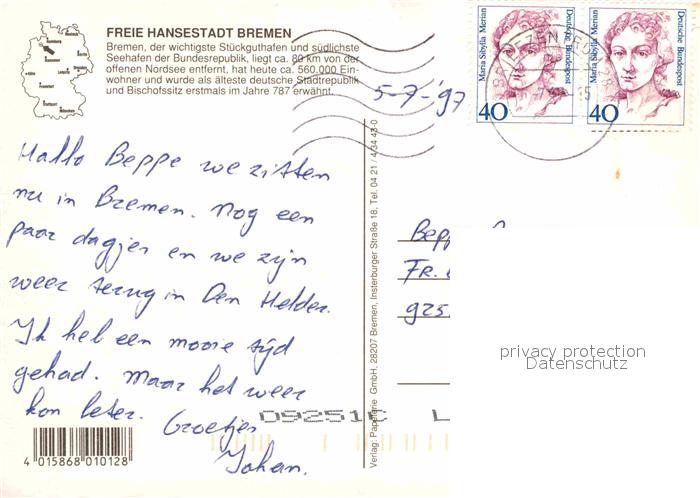 FREIE HANSESTADT BREMEN
Bremen, der wichtigste Stückguthafen und südlichste
Seehafen der Bundesrepublik, liegt ca. 89 km von der
offenen Nordsee entfernt, hat heute ca. 560.000 Ein-
wohner und wurde als älteste deutsche Stadtrepublik
und Bischofssitz erstmals im Jahre 787 erwähnt.
5-7-'97
Maria Sibylla Merian
Deutsche Bundespost
40
Maria Sibylla Merian
Deutsche Bundespost
40
Hallo Beppe we zitten
nu in Bremen. Nog een
paar dagjes en we zijn
weer terug in Den Helder.
Ik heb een mooie tijd
gehad. Maar het weer
kon beter. Groetjes
Johan.
Verlag: Papeterie GmbH, 28207 Bremen, Insterburger Straße 18, Tel. 04 21 / 4 34 43-0
Bepp
Fr.
925
privacy protection
Datenschutz
09251C L
4 015868 010128